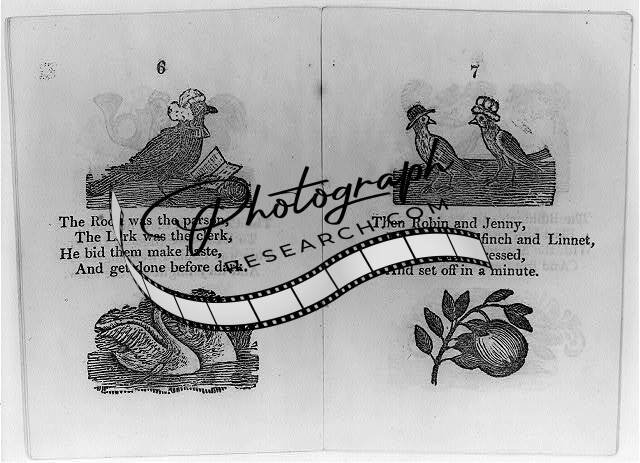 6
The Rook was the parson,
The Lark was the clerk,
He bid them make haste,
And get done before dark.
7
Then Robin and Jenny,
finch and Linnet,
essed,
And set off in a minute.
Photograph
RESEARCH.COM